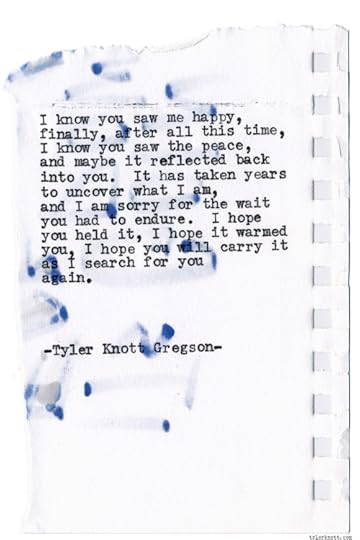 I know you saw me happy,
finally, after all this time,
I know you saw the peace,
and maybe it reflected back
into you.  It has taken years
to uncover what I am,
and I am sorry for the wait
you had to endure.  I hope
you held it, I hope it warmed
you, I hope you will carry it
as I search for you
again.
-Tyler Knott Gregson-
tylerknott.com